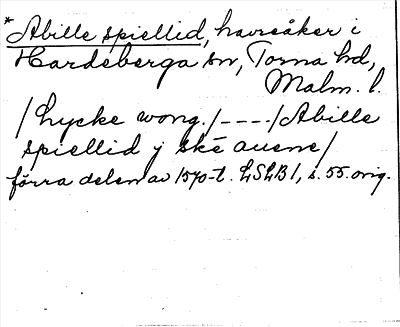 *Abille spiellid, havreåker i
Hardeberga sn, Torna hd,
Malm. l.
/Lycke wong./----/Abille
spiellid j ske auene/
förra delen av 1570-t. LSLB 1, s. 55. orig.